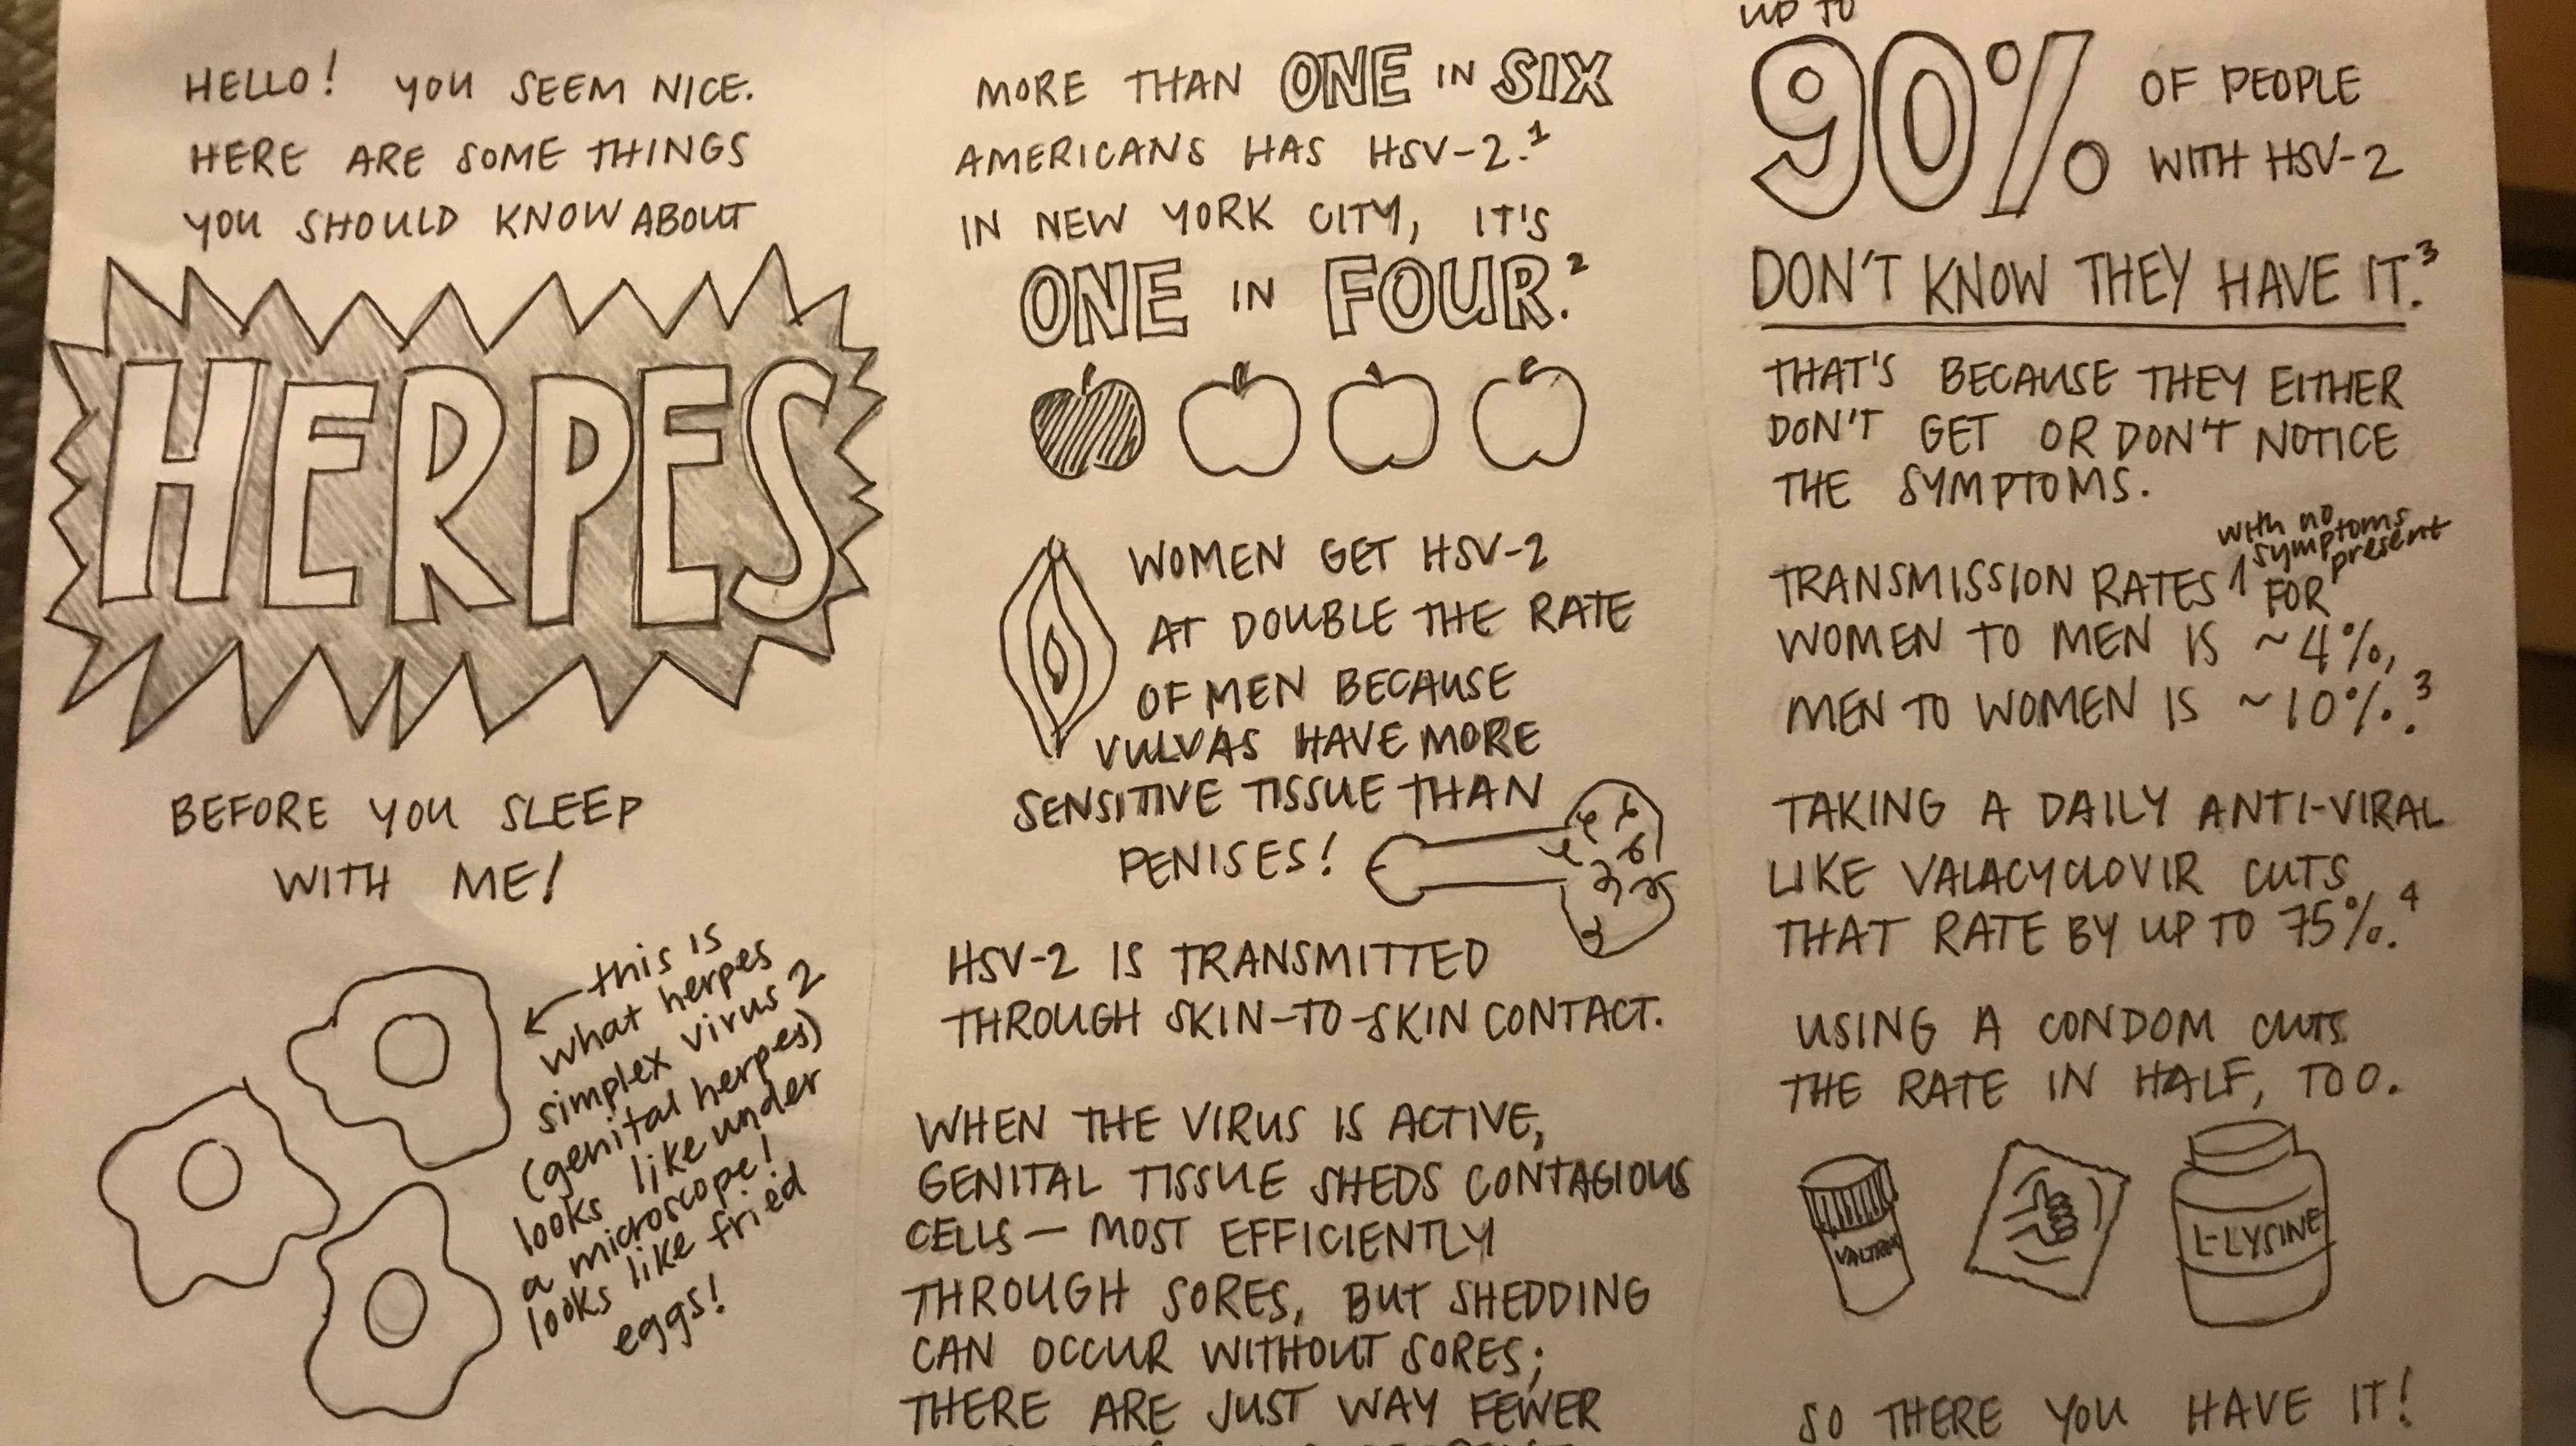 HELLO! YOU SEEM NICE.
HERE ARE SOME THINGS
YOU SHOULD KNOW ABOUT
HERPES
BEFORE YOU SLEEP
WITH ME!
this is
what herpes
simplex virus 2
(genital herpes)
looks like under
a microscope!
looks like fried
eggs!
MORE THAN ONE IN SIX
AMERICANS HAS HSV-2.¹
IN NEW YORK CITY, IT'S
ONE IN FOUR.²
WOMEN GET HSV-2
AT DOUBLE THE RATE
OF MEN BECAUSE
VULVAS HAVE MORE
SENSITIVE TISSUE THAN
PENISES!
HSV-2 IS TRANSMITTED
THROUGH SKIN-TO-SKIN CONTACT.
WHEN THE VIRUS IS ACTIVE,
GENITAL TISSUE SHEDS CONTAGIOUS
CELLS — MOST EFFICIENTLY
THROUGH SORES, BUT SHEDDING
CAN OCCUR WITHOUT SORES;
THERE ARE JUST WAY FEWER
UP TO
90% OF PEOPLE
WITH HSV-2
DON'T KNOW THEY HAVE IT.³
THAT'S BECAUSE THEY EITHER
DON'T GET OR DON'T NOTICE
THE SYMPTOMS.
with no
symptoms
present
TRANSMISSION RATES FOR
WOMEN TO MEN IS ~4%,
MEN TO WOMEN IS ~10%.³
TAKING A DAILY ANTI-VIRAL
LIKE VALACYCLOVIR CUTS
THAT RATE BY UP TO 75%.⁴
USING A CONDOM CUTS
THE RATE IN HALF, TOO.
VALTREX
L-LYSINE
SO THERE YOU HAVE IT!